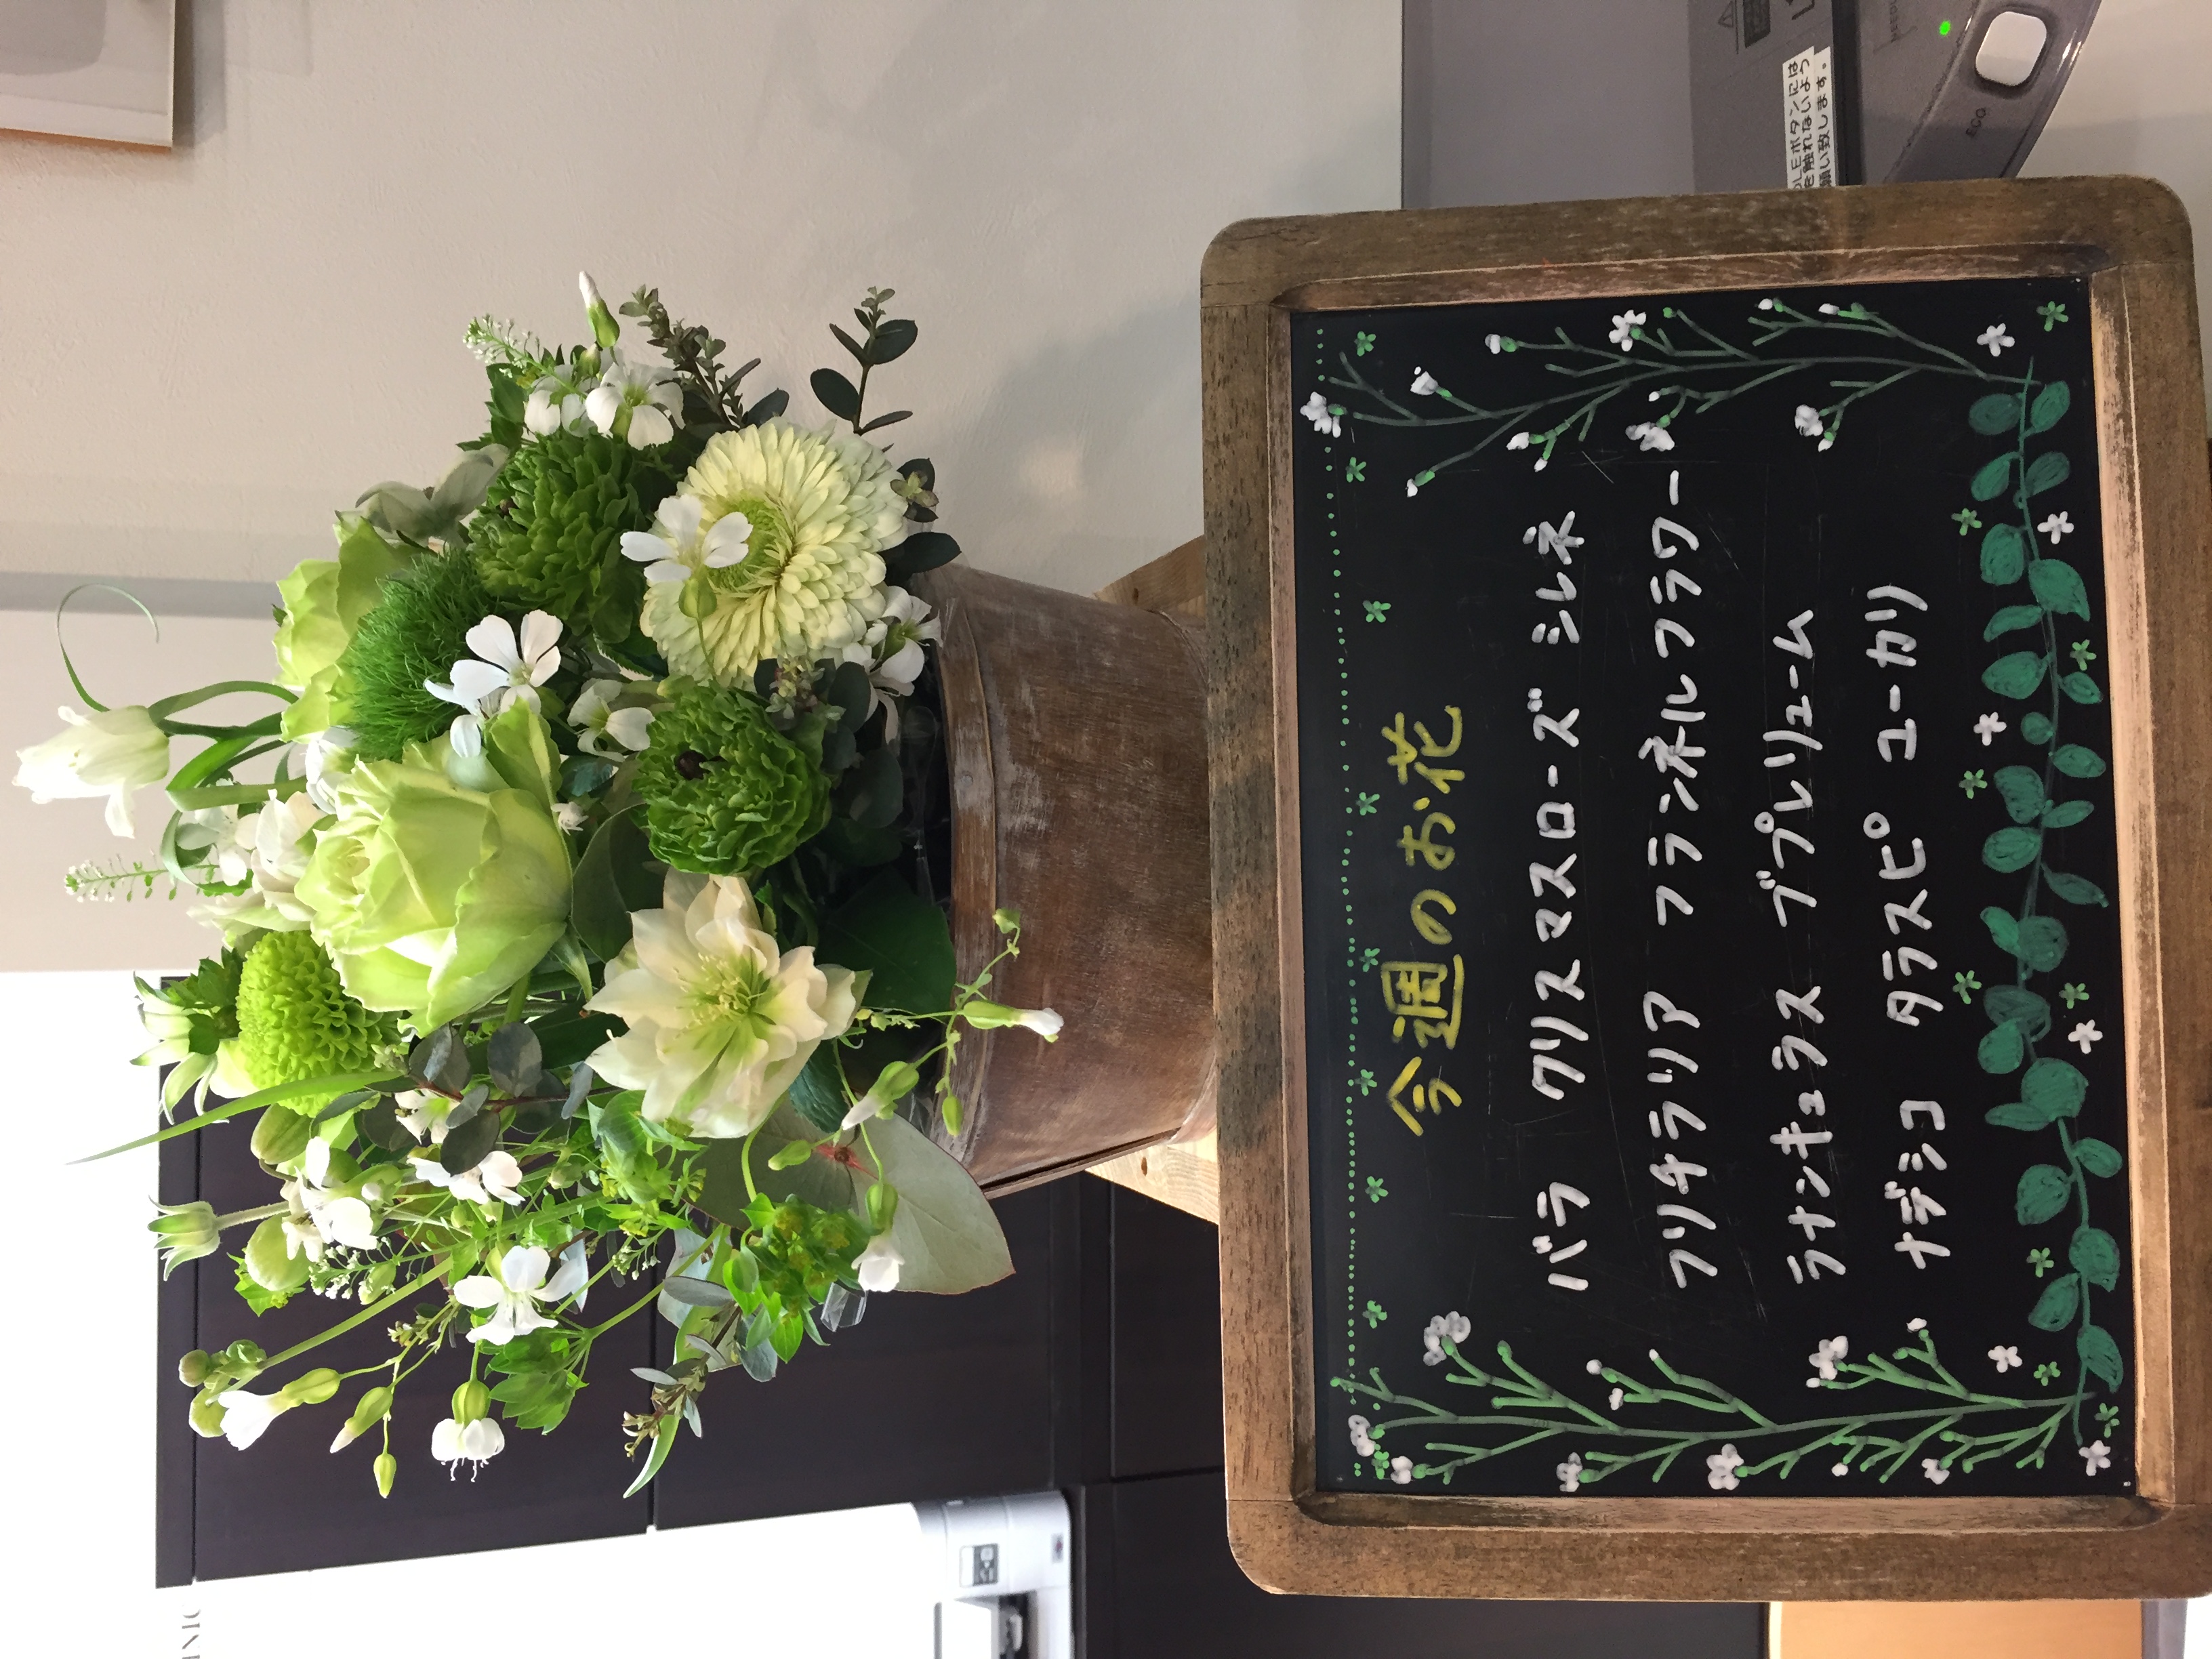 今週のお花
バラ クリスマスローズ シレネ
フリチラリア フランネルフラワー
ラナンキュラス ブプレリューム
ナデシコ タラスピ ユーカリ
ボタンには
触れないよう
願い致します。
ECO